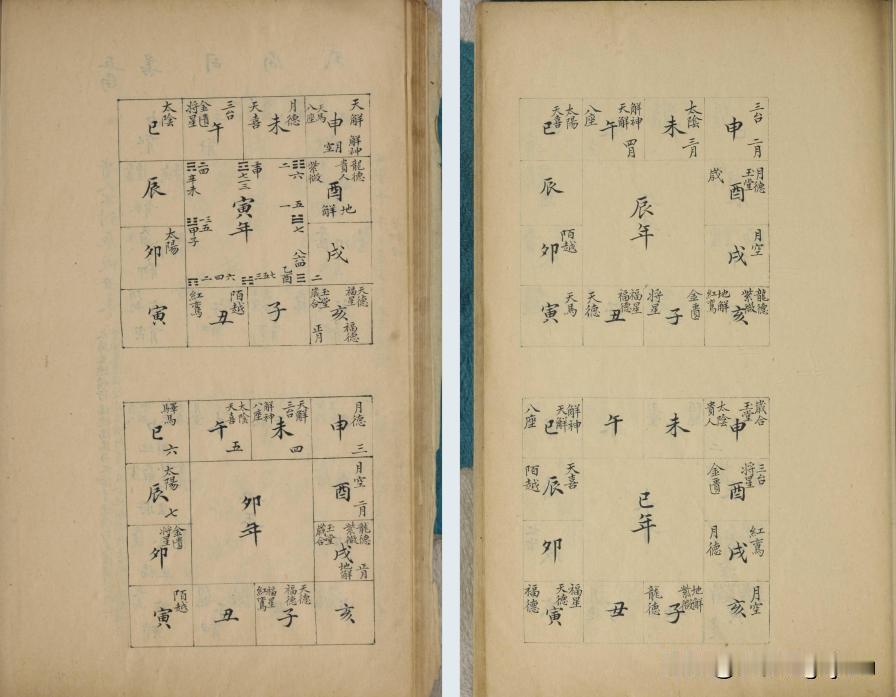 太陰
巳
三台
金匱
将星
午
月德
天喜
未
天解
解神
天馬
八座
申
月
空
辰
寅年
甲子
辛未
乙酉
龍德
貴人
紫微
酉
地
解
太陽
卯
戌
寅
陌越
紅鸞
丑
子
天德
福星
玉堂
歳合
亥
福德
正月
驛馬
巳
六
太陰
天喜
午
五
天解
三台
解神
八座
未
四
月德
申
三
太陽
辰
七
卯年
月空
酉
二月
金匱
将星
卯
龍德
紫微
玉堂
歳合
戌
地解
正月
陌越
寅
丑
天德
福德
福星
紅鸞
子
亥
太陽
天喜
巳
解神
天解
八座
午
四月
太陰
未
三月
三台
申
二月
辰
辰年
月德
玉堂
歳
酉
陌越
卯
月空
戌
天馬
寅
福星
福德
天德
丑
金匱
将星
子
龍德
紫微
地解
紅鸞
亥
解神
天解
八座
巳
午
未
歳合
玉堂
太陰
貴人
申
天喜
陌越
辰
巳年
三台
将星
金匱
酉
卯
紅鸞
月德
戌
福星
天德
福德
寅
丑
地解
紫微
龍德
子
月空
亥